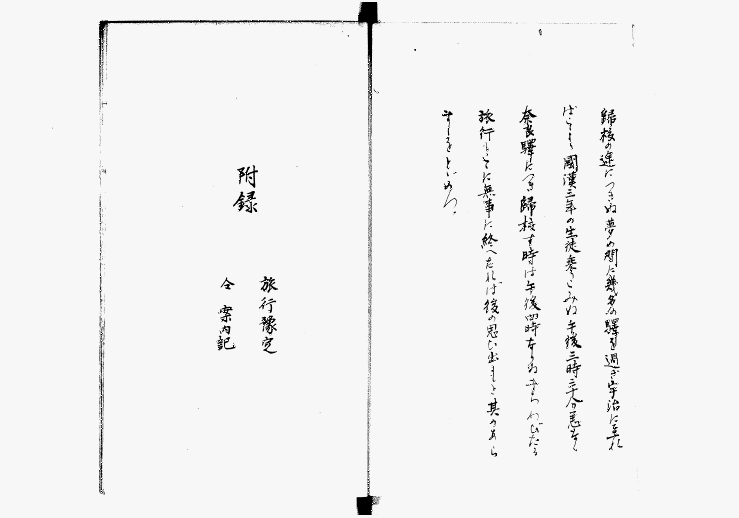 歸校の途につきぬ夢の間に幾多の驛を過ぎ宇治に至れ
ば 國漢三年の生徒参 こみぬ午後三時三十分恙なく
奈良驛につき歸校す時は午後四時
旅行もここに無事に終へたれば後の思ひ出にと其のあら
ましをしるしつ
附録
旅行豫定
仝 案内記